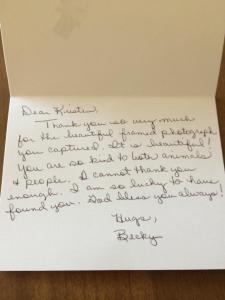 Dear Kristen,
Thank you so very much
for the beautiful framed photograph
you captured. It is beautiful!
You are so kind to both animals
& people. I cannot thank you
enough. I am so lucky to have
found you. God bless you always!
Hugs,
Becky